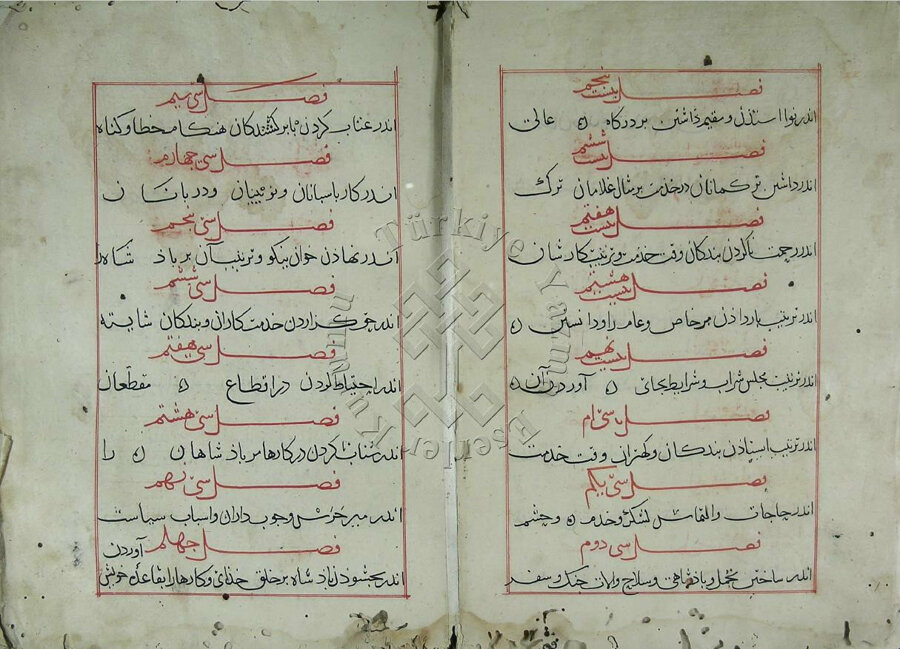 فصل بیست پنجم
اندر نوا استاذن و مقیم داشتن بر درکاه عالی
فصل بیست ششم
اندر داشتن ترکمانان در خدمت بر مثال غلامان ترک
فصل بیست هفتم
اندر زحمت ناکردن بندکان وقت خدمت و ترتیب کار شان
فصل بیست هشتم
اندر ترتیب بار داذن مر خاص و عام را و دانستن
فصل بیست نهم
اندر ترتیب مجلس شراب و شرایط بجای آوردن آن
فصل سی ام
اندر ترتیب استاذن بندکان و کهتران وقت خدمت
فصل سی یکم
اندر حاجات و التماس لشکر و خدم و حشم
فصل سی دوم
اندر ساختن تجمل و باذشاهی و سلاح و الات جنک و سفر
فصل سی سیم
اندر عتاب کردن با برکشیدکان هنکام خطا و کناه
فصل سی چهارم
اندر کار باسبانان و نوبتیان و دربانان
فصل سی پنجم
اندر نهاذن خوان نیکو و ترتیب آن بر باذشاه
فصل سی ششم
اندر حق کزاردن خدمتکاران و بندکان شایسته
فصل سی هفتم
اندر احتیاط کردن در اقطاع مقطعان
فصل سی هشتم
اندر شتاب کردن در کارها مر باذشاهان را
فصل سی نهم
اندر میر حرس و چوب داران و اسباب سیاست
فصل چهلم
اندر بخشوذن باذشاه بر خلق خذای و کارها را بقاعده خویش آوردن
Türkiye Yazma Eserler Kurumu